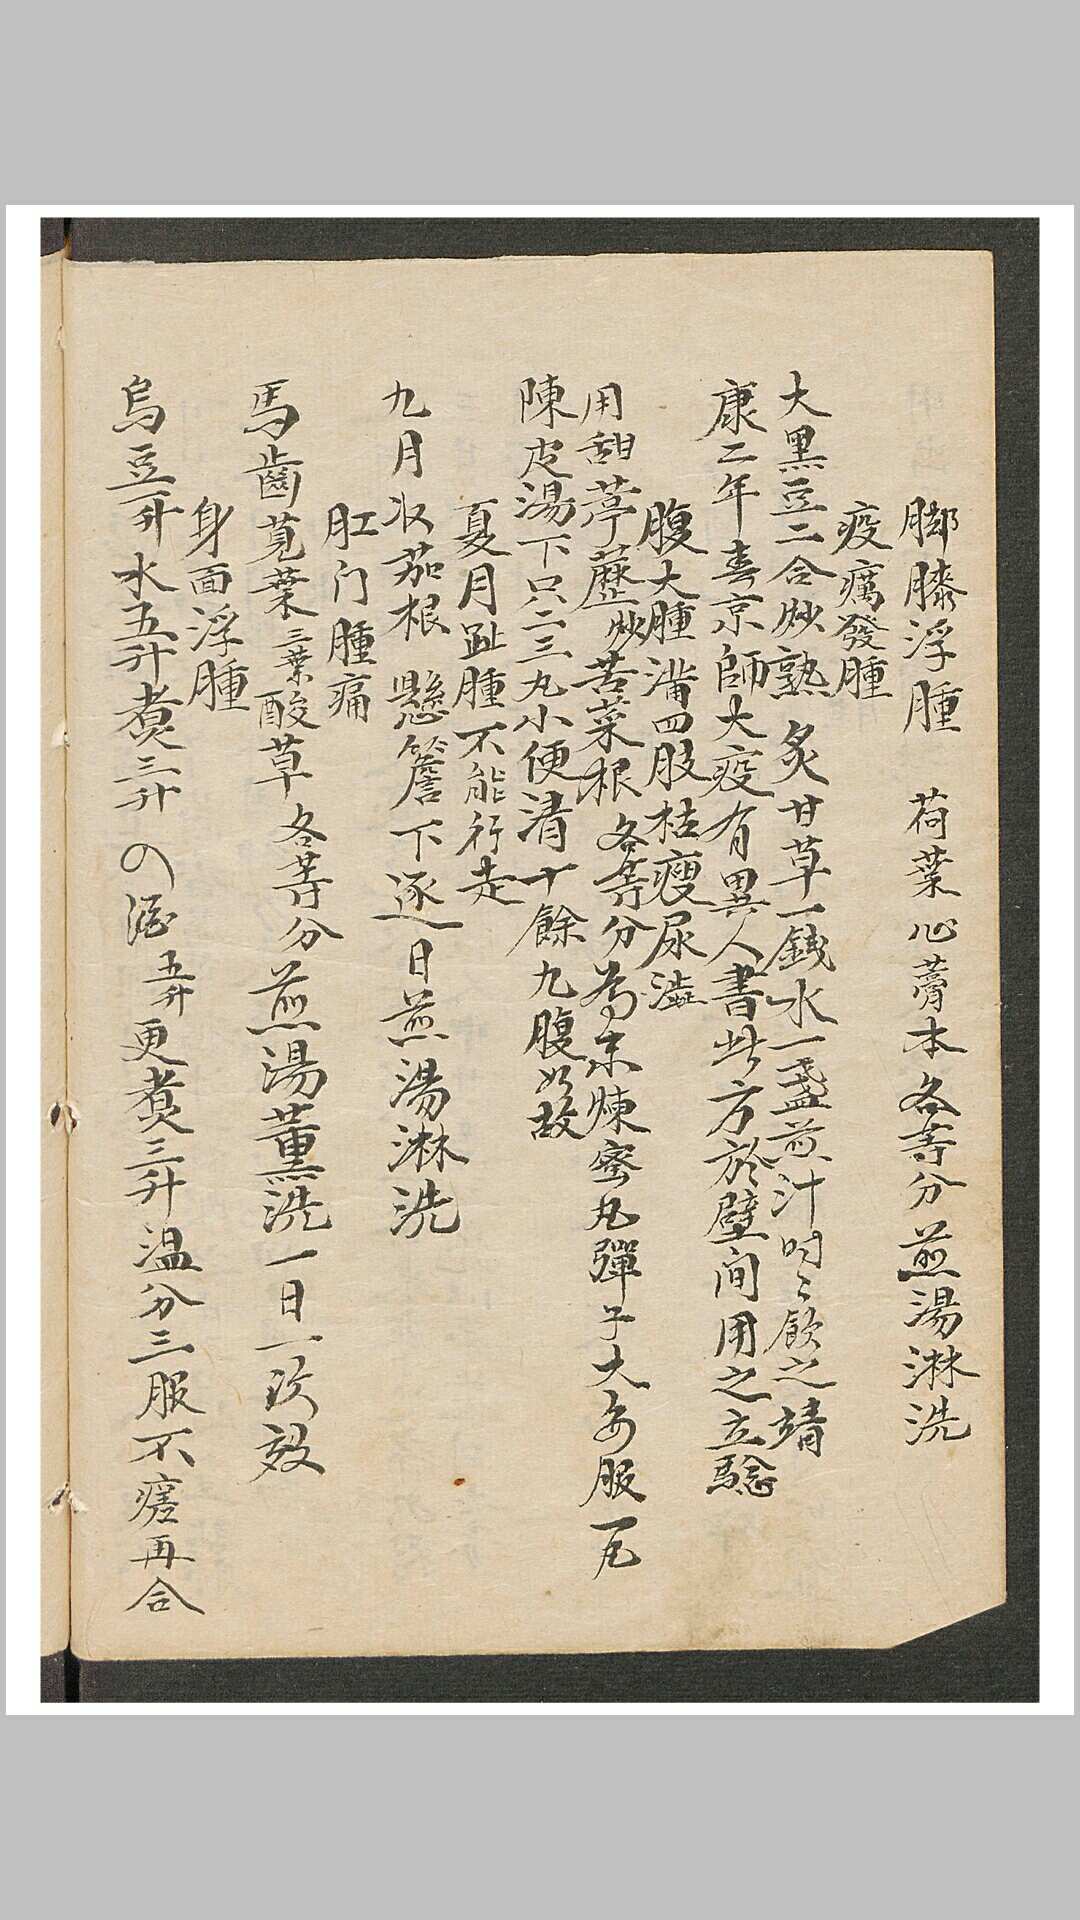 脚膝浮腫　荷葉心藁本各等分煎湯淋洗
疫癘發腫
大黒豆二合炒熟炙甘草一銭水一盞煎汁时〻飲之靖
康二年春京師大疫有異人書此方於壁间用之立騐
腹大腫滿四肢枯瘦尿澁
用甜葶藶炒苦菜根各等分為末煉蜜丸彈子大每服一丸
陳皮湯下只二三丸小便清十餘丸腹如故
夏月趾腫不能行走
九月収茄根懸簷下逐日煎湯淋洗
肛门腫痛
馬齒莧葉三葉酸草各等分煎湯薰洗一日一次效
身面浮腫
烏豆一升水五升煮三升の酒五升更煮三升温分三服不瘥再合